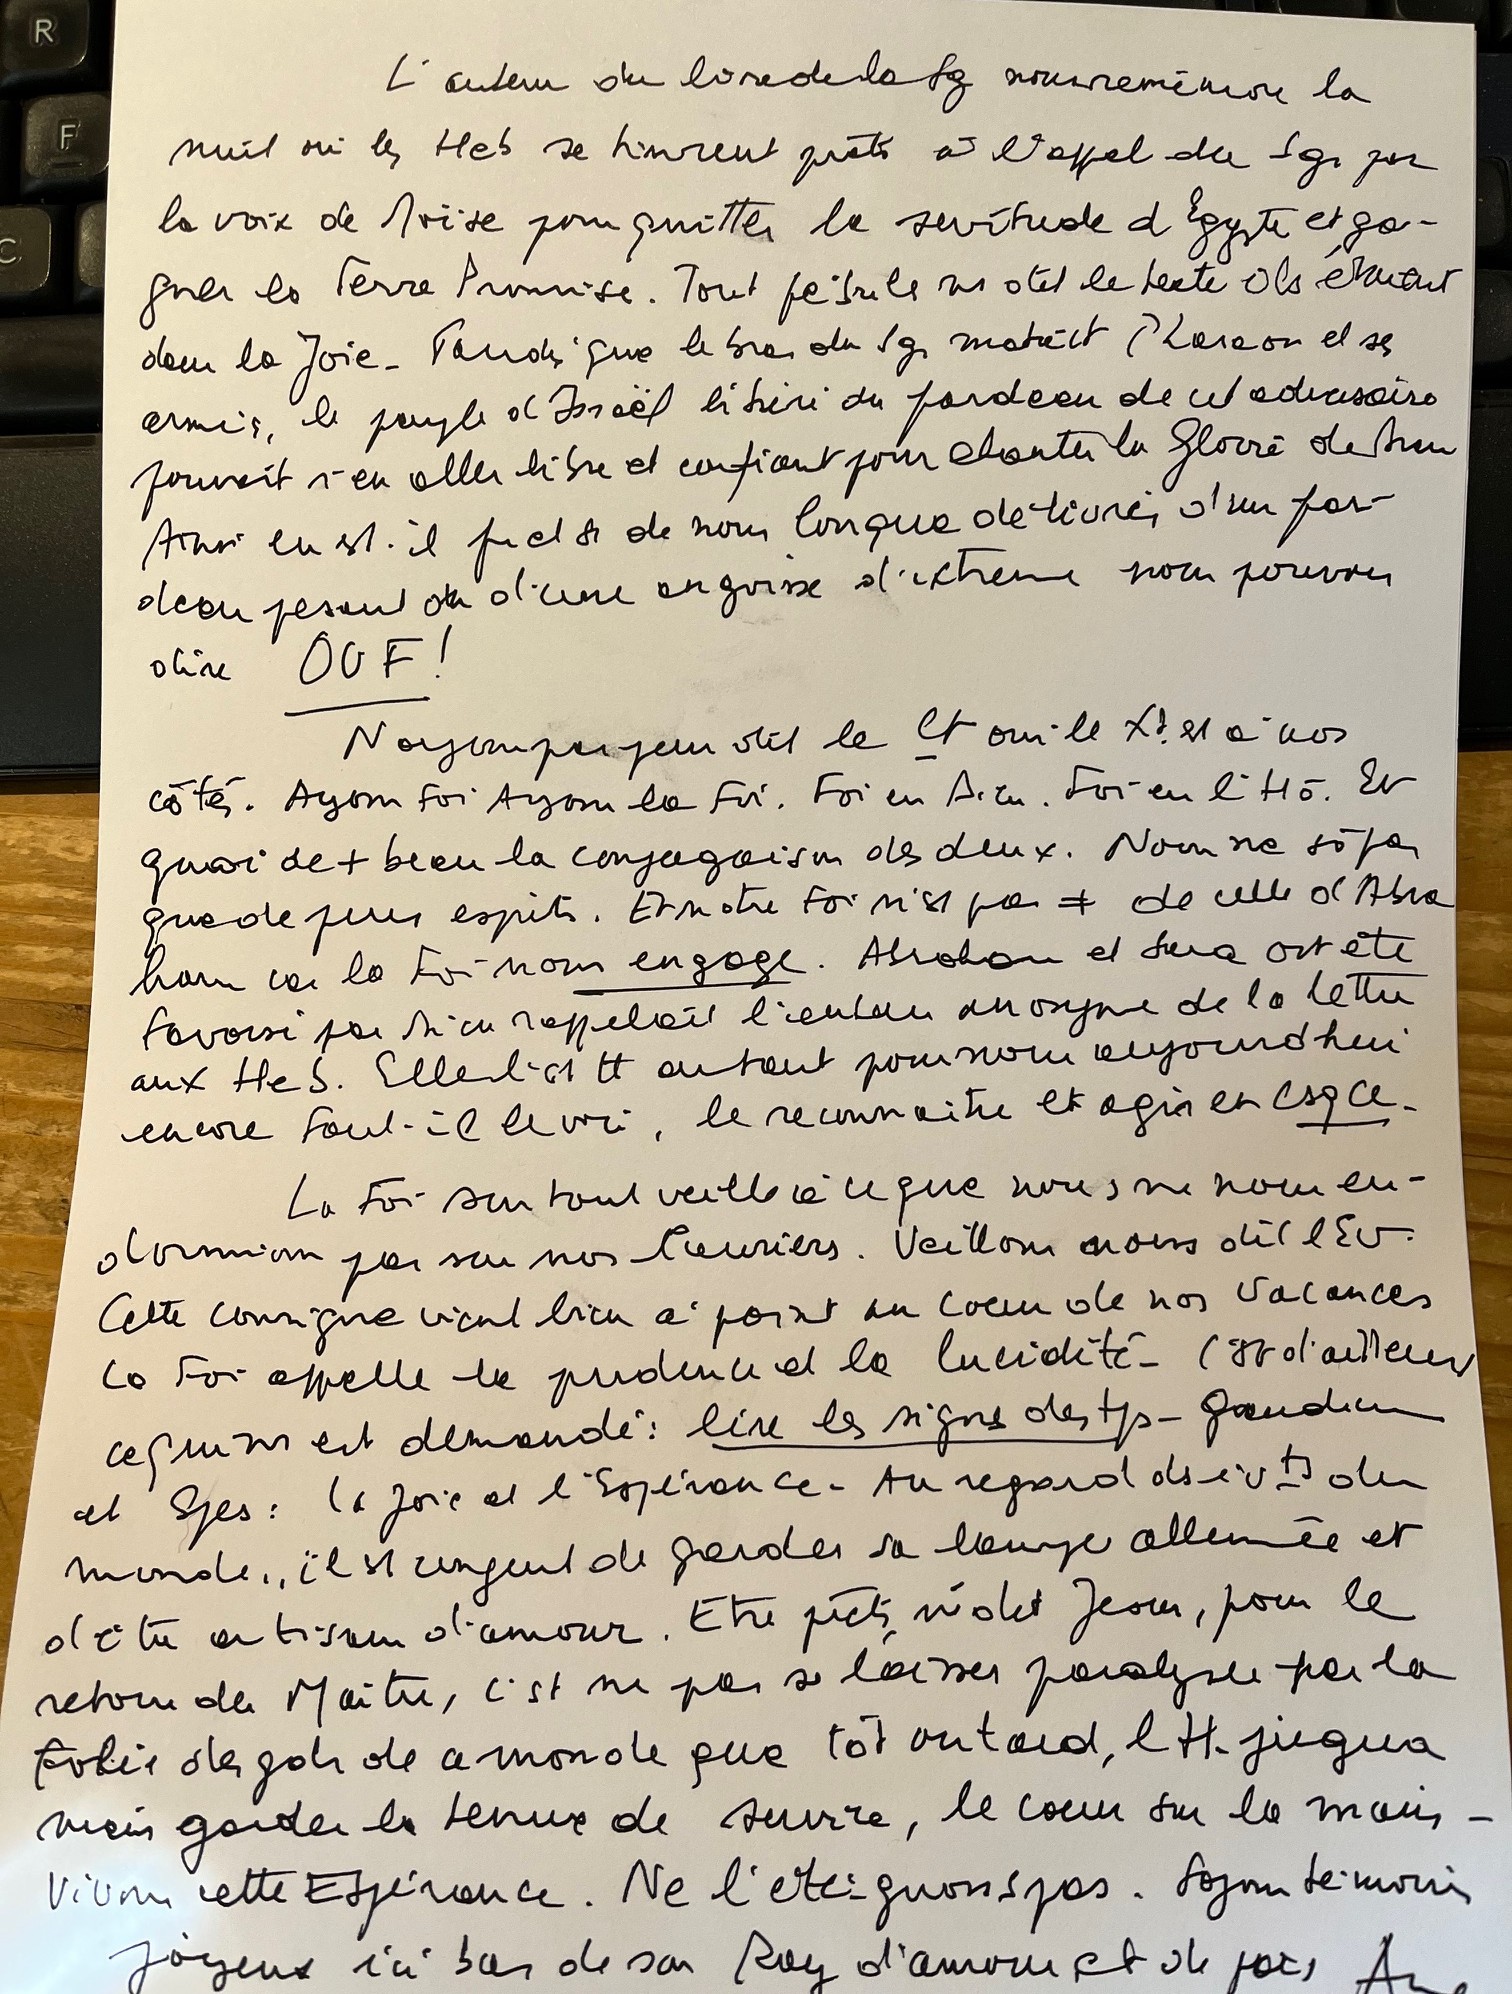 L'auteur du livre de la Sg nous remémore la
nuit où les Heb se tinrent prêts à l'appel du Sgr par
la voix de Moïse pour quitter la servitude d'Egypte et ga-
gner la Terre Promise. Tout pénible ns dit le texte ils étaient
dans la Joie - Tandis que le bras du Sgr matait Pharaon et ses
armées, le peuple d'Israël libéré du fardeau de cet adversaire
pouvait s'en aller libre et confiant pour chanter la Gloire de Dieu
Ainsi en est-il de nous lorsque délivrés d'un far-
deau pesant ou d'une angoisse d'extrême nous pouvons
dire OUF!
N'ayons pas peur dit le Ct oui le Xt est à nos
côtés. Ayons Foi Ayons la Foi. Foi en Dieu. Foi en l'Hô. Et
quoi de + beau la conjugaison des deux. Nous ne sô pas
que de purs esprits. Et notre Foi n'est pas ≠ de celle d'Abra
ham car la Foi nous engage. Abraham et Sara ont été
favorisé par Dieu rappelait l'auteur anonyme de la lettre
aux Heb. Elle l'est tt autant pour nous aujourd'hui
encore faut-il le voir, le reconnaître et agir en csqce -
La Foi surtout veille à ce que nous ne nous en-
dormions pas sur nos lauriers. Veillons nous dit l'Ev.
Cette consigne vient bien à point au coeur de nos vacances
La Foi appelle la prudence et la lucidité - C'est d'ailleurs
ce qui ns est demandé : lire les signes des tps - Gaudium
et Spes : la Joie et l'Espérance - Au regard ds évts du
monde, il est urgent de garder sa lampe allumée et
d'être artisans d'amour. Etre prêts, ns dit Jésus, pour le
retour du Maître, c'est ne pas se laisser paralyser par la
folie des gds de ce monde que tôt ou tard, l'H. jugera
mais garder la tenue de service, le coeur sur la main -
Vivons cette Espérance. Ne l'éteignons pas. Soyons témoins
joyeux ici bas de son Roy d'amour et de paix